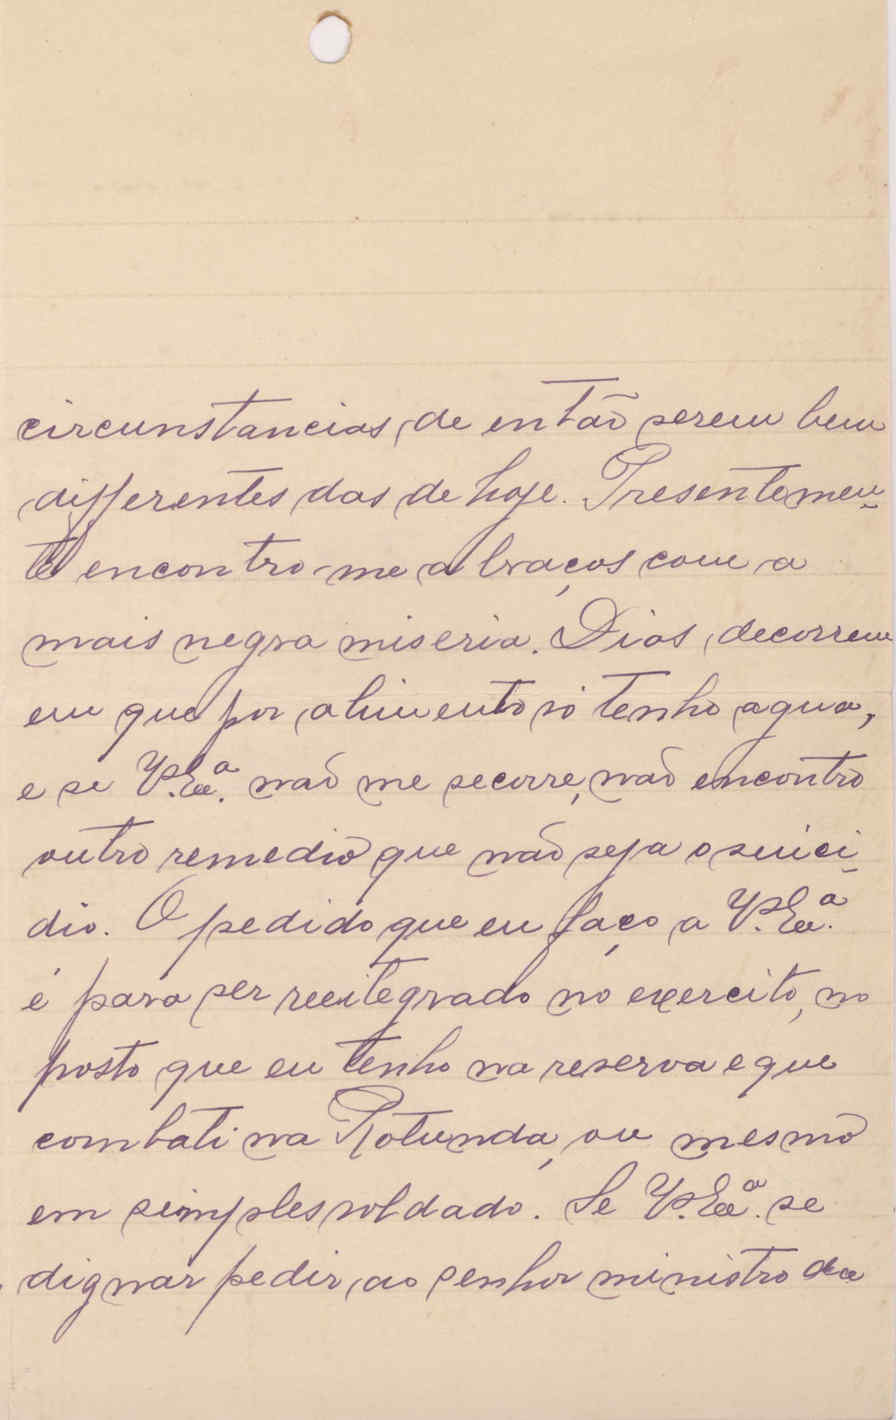 circunstancias, de então serem bem
differentes das de hoje. Presentemen-
te encontro-me a braços com a
mais negra miseria. Dias, decorrem
em que por alimento só tenho agua,
e se V.Exª. não me secorre, não encontro
outro remedio que não seja o suici-
dio. O pedido que eu faço a V.Exª.
é para ser reeitegrado no exercito, no
posto que eu tenho na reserva e que
combati na Rotunda, ou mesmo
em simples soldado. Se V.Exª. se
dignar pedir, ao senhor ministro da